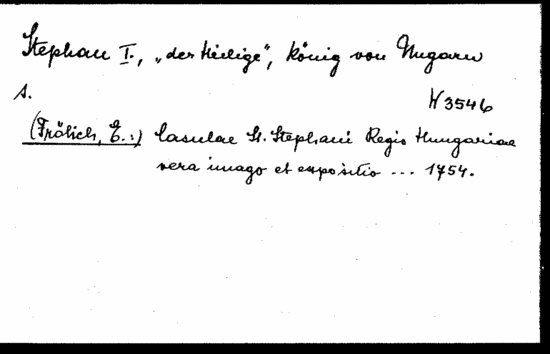 Stephan I., „der Heilige“, König von Ungarn
s.
W 3546
(Frölich, E.:) Casulae St. Stephani Regis Hungariae
vera imago et expositio ... 1754.